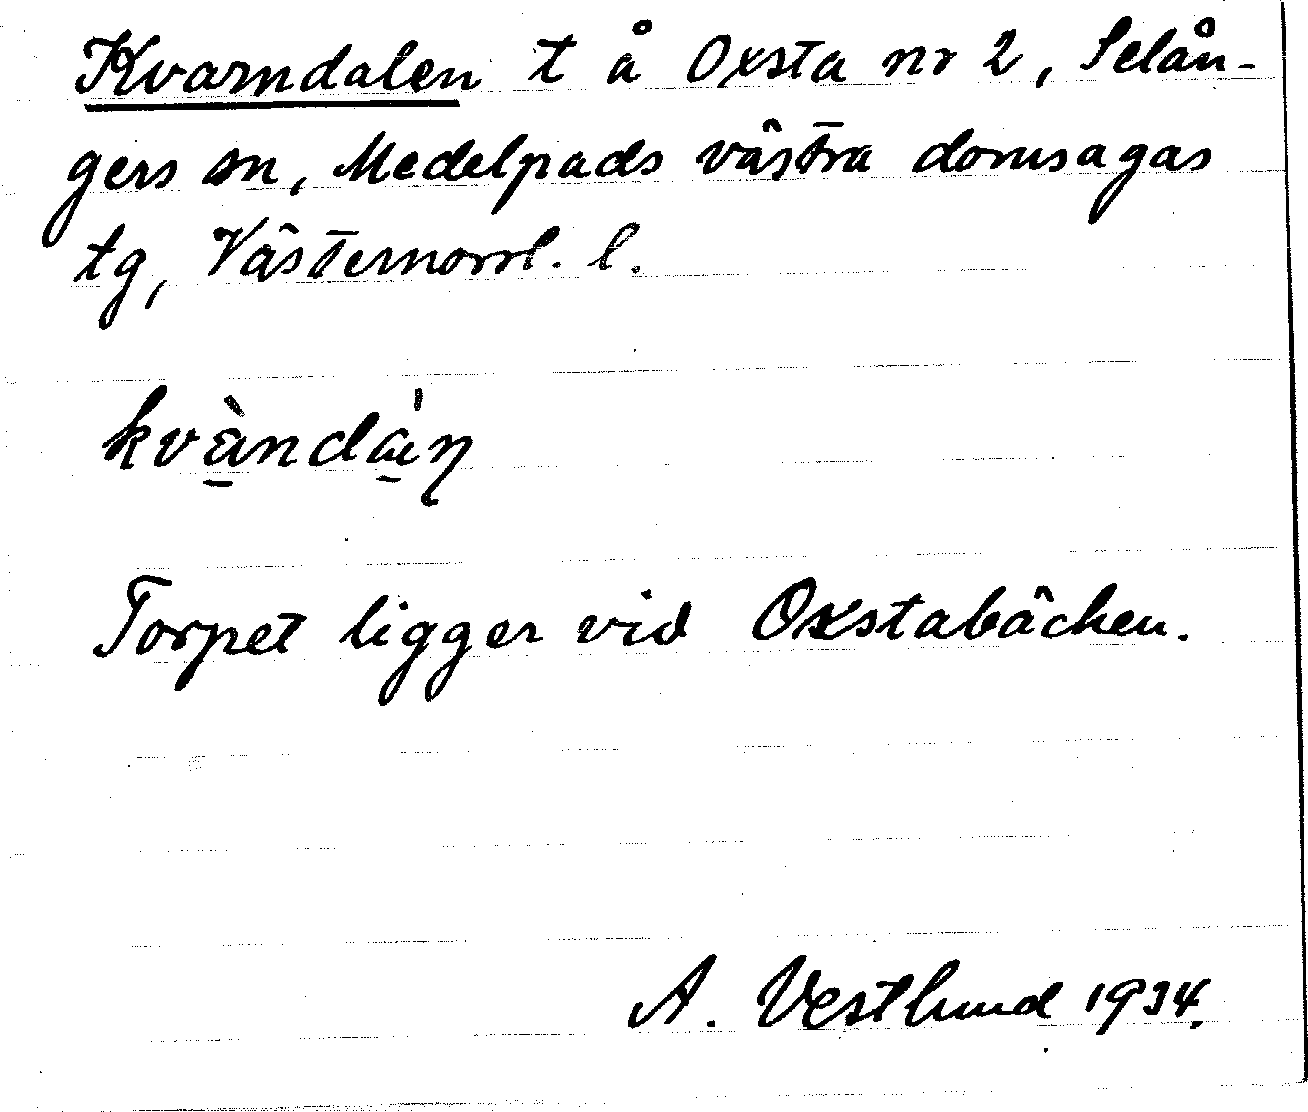 Kvarndalen t å Oxsta nr 2, Selån-
gers sn, Medelpads västra domsagas
tg, Västernorrl. l.
kvà̠ndà̠ṇ
Torpet ligger vid Oxstabäcken.
A. Vestlund 1934.